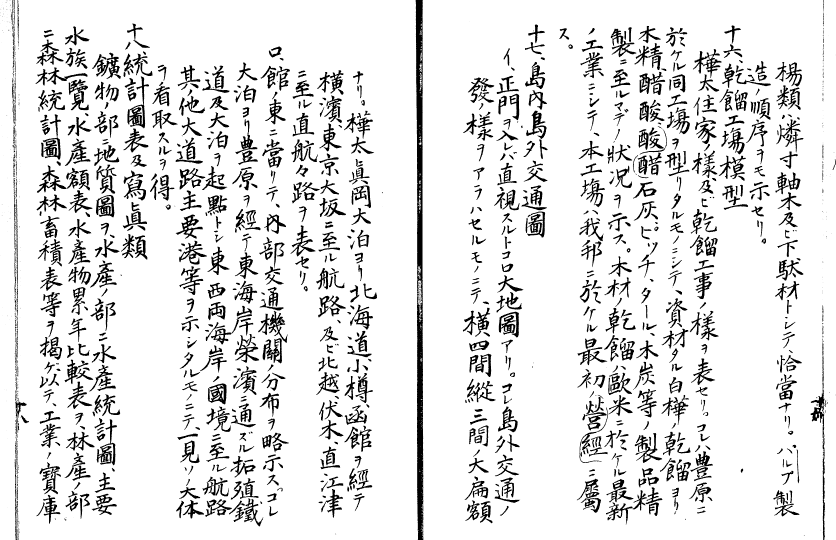 楊類ハ燐寸軸木及ビ下駄材トシテ恰當ナリ。パルプ製
造ノ順序ヲモ示セリ。
十六、乾餾工場模型
樺太住家ノ様及ビ乾餾工事ノ様ヲ表セリ。コレハ豊原ニ
於ケル同工場ヲ型リタルモノニシテ、資材タル白樺ノ乾餾ヨリ
木精、醋酸、酸醋石灰、ピッチ、タール、木炭等ノ製品精
製ニ至ルマデノ狀況ヲ示ス。木材ノ乾餾ハ歐米ニ於ケル最新
ノ工業ニシテ、本工場ハ我邦ニ於ケル最初ノ營經ニ屬
ス。
十七、島內島外交通圖
イ、正門ヲ入レバ直視スルトコロ大地圖アリ。コレ島外交通ノ
發ノ様ヲアラハセルモノニテ、横四間縱三間ノ大扁額
ナリ。樺太眞岡大泊ヨリ北海道小樽函館ヲ經テ
横濱東京大坂ニ至ル航路、及ビ北越、伏木、直江津
ニ至ル直航々路ヲ表セリ。
ロ、館ノ東ニ當リテ、內部交通機關ノ分布ヲ略示ス。コレ
大泊ヨリ豊原ヲ經テ東海岸榮濱ニ通ズル拓殖鐵
道及大泊ヲ起點トシ東西両海岸ノ國境ニ至ル航路
其他大道路主要港等ヲホシタルモノニテ、一見ソノ大体
ヲ看取スルヲ得。
十八、統計圖表及寫眞類
鑛物ノ部ニ地質圖ヲ、水産ノ部ニ水産統計圖、主要
水族一覽、水産額表、水産物累年比較表ヲ、林産ノ部
ニ森林統計圖、森林畜積表等ヲ揭ゲ、以テ、工業ノ寶庫